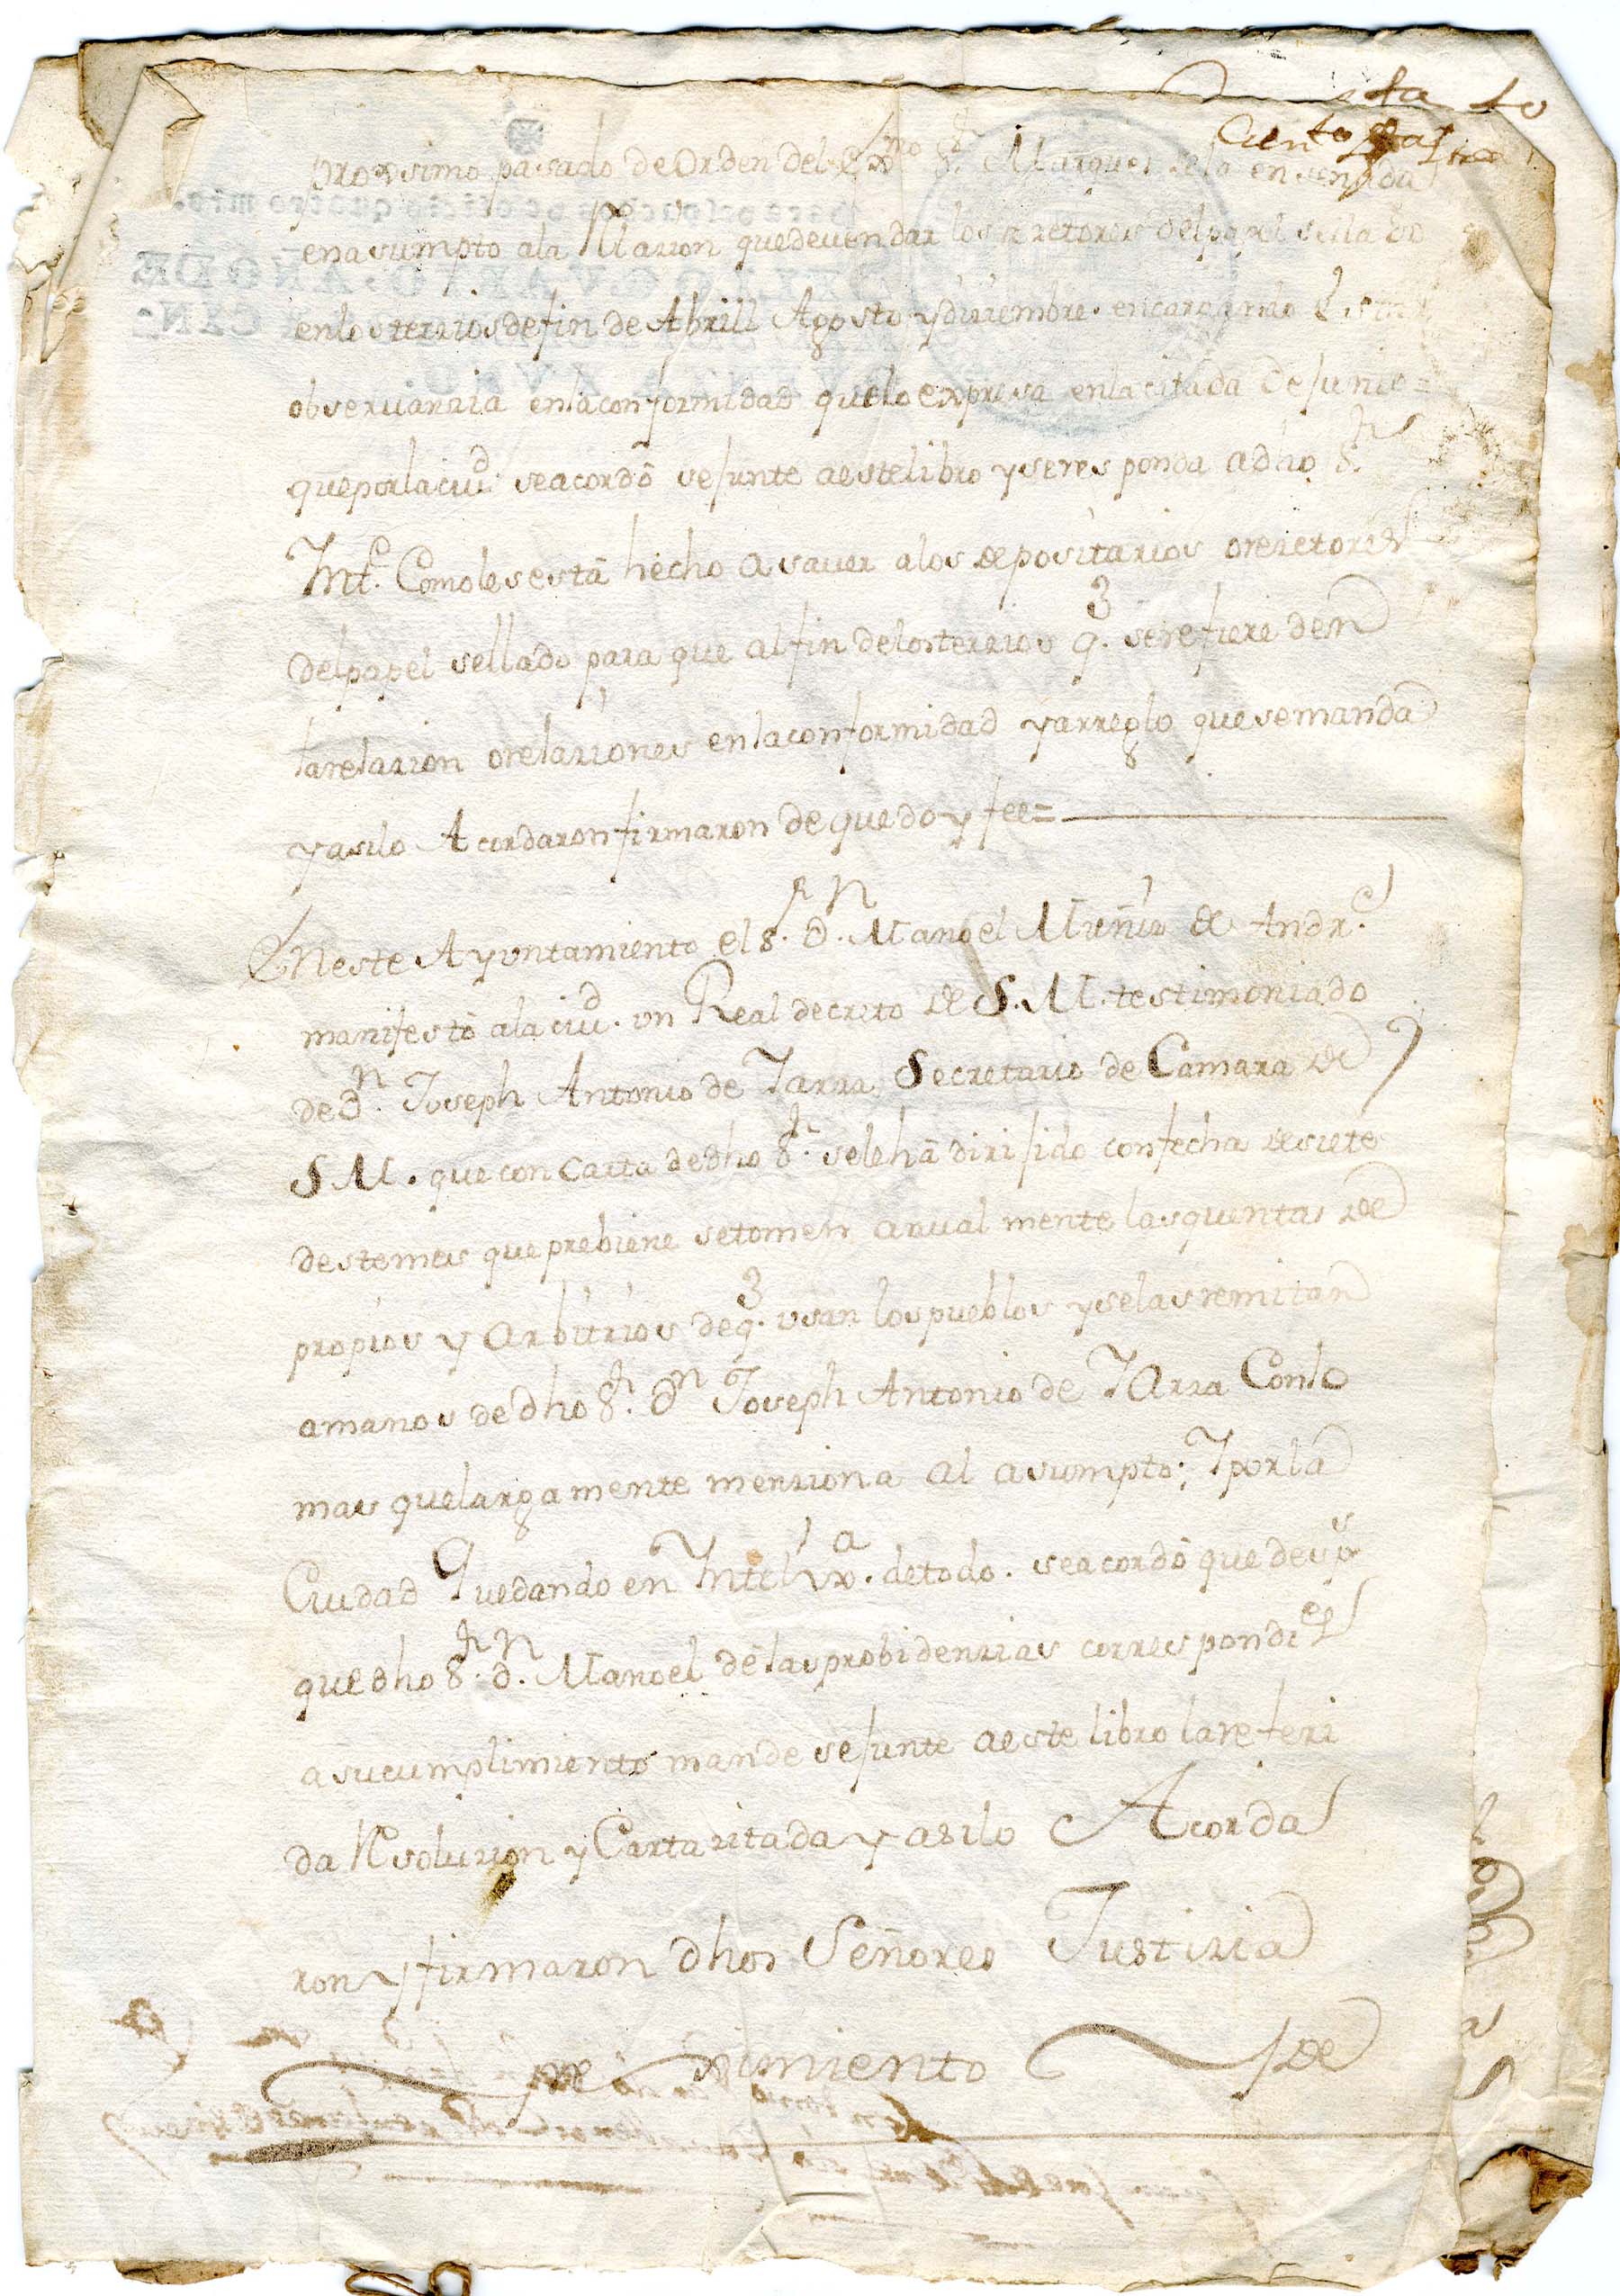 Ciento
proxsimo pasado de Orden del Exmo Sr. Marques de la ensenada
en asumpto ala Rlazion que deven dar los rretores del papel sellado
en los terzios de fin de Abrill Agosto y diziembre. encargando
observanzia en la conformidad que lo expresa en la citada de Junio =
que por la ciud. se acordó se Junte a este libro y se responda a dho Sr.
Intte. Como les está hecho a saver a los depositarios o rezetores
del papel sellado para que al fin de los terzios q. se refiere den
la relazion o relaziones en la conformidad y arreglo que se manda
y asilo Acordaron firmaron de que doy fee =
En este Ayuntamiento el Sr. Dn. Manoel Muñiz de Andre.
manifestó ala ciud. un Real decreto de S.M. testimoniado
de Dn. Joseph Antonio de Yarza Secretario de Camara de
S.M. que con Carta de dho Sr. se le há dirijido con fecha de siete
deste mes que prebiene se tomen anual mente las quentas de
propios y Arbitrios de q. usan los pueblos y se las remitan
a manos de dho Sr. Dn Joseph Antonio de Yarza Con lo
mas que largamente menziona al asumpto; Y por la
Ciudad Quedando en Intelixa. de todo. se acordó que
que dho Sr. Dn. Manoel dé las probidenzias correspondies
a su cumplimiento mande se Junte a este libro la referi
da Rsoluzion y Carta zitada y asilo Acorda
ron y firmaron dhos Señores Justizia
de